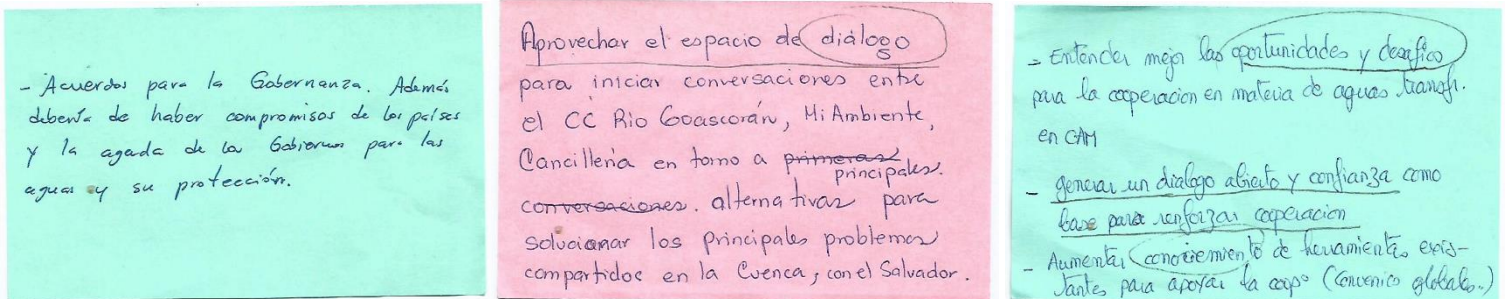 - Acuerdos para la Gobernanza. Además
debería de haber compromisos de los países
y la agenda de los Gobiernos para las
aguas y su protección.
Aprovechar el espacio de diálogo
para iniciar conversaciones entre
el CC Rio Goascorán, Mi Ambiente,
Cancillería en torno a primeras
principales.
conversaciones. alternativas para
solucionar los principales problemas
compartidos en la Cuenca, con el Salvador.
- Entender mejor las oportunidades y desafios
para la cooperacion en materia de aguas transfr.
en CAM
- generar un dialogo abierto y confianza como
base para renforzar cooperacion
- Aumentar conocimiento de herramientas exis-
tantes para apoyar la coop° (Convenios globales.)